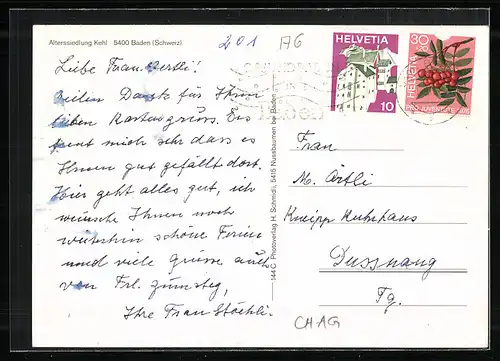 Alterssiedlung Kehl   5400 Baden (Schweiz)
201 A6
HELVETIA
10
30
+20
HELVETIA
PRO JUVENTUTE
Liebe Frau Oertli!
Vielen Dank für Ihren
lieben Kartengruss. Es
freut mich sehr dass es
Ihnen gut gefällt dort.
Hier geht alles gut, ich
wünsche Ihnen noch
weiterhin schöne Ferien
und viele Grüsse auch
von Frl. Zünsteg,
Ihre Frau Stöckli.
144 C Photoverlag H. Schmidli, 5415 Nussbaumen bei Baden
Frau
M. Örtli
Kneipp Kuhrhaus
Dussnang
Tg.
CHAG